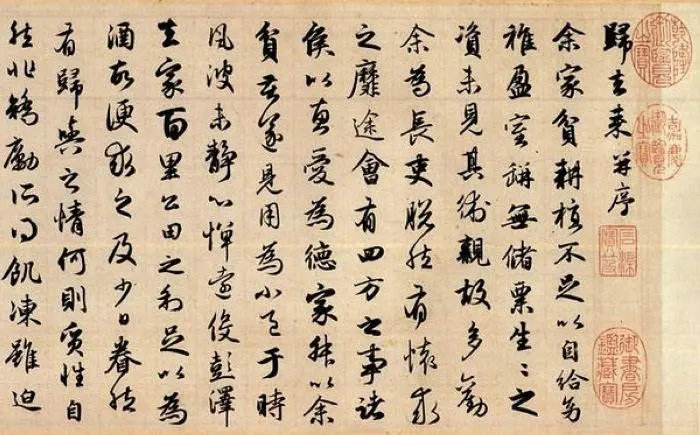 乾隆御覽之寶
嘉慶御覽之寶
石渠寶笈
御書房鑑藏寶
歸去来并序
余家貧耕植不足以自給幼
稚盈室缾無儲粟生々之
資未見其術親故多勸
余為長吏脫然有懷求
之靡途會有四方之事諸
侯以惠愛為德家叔以余
貧苦遂見用為小邑于時
風波未靜心憚遠役彭澤
去家百里公田之利足以為
酒故便求之及少日眷然
有歸與之情何則質性自
然非矯勵所得飢凍雖迫